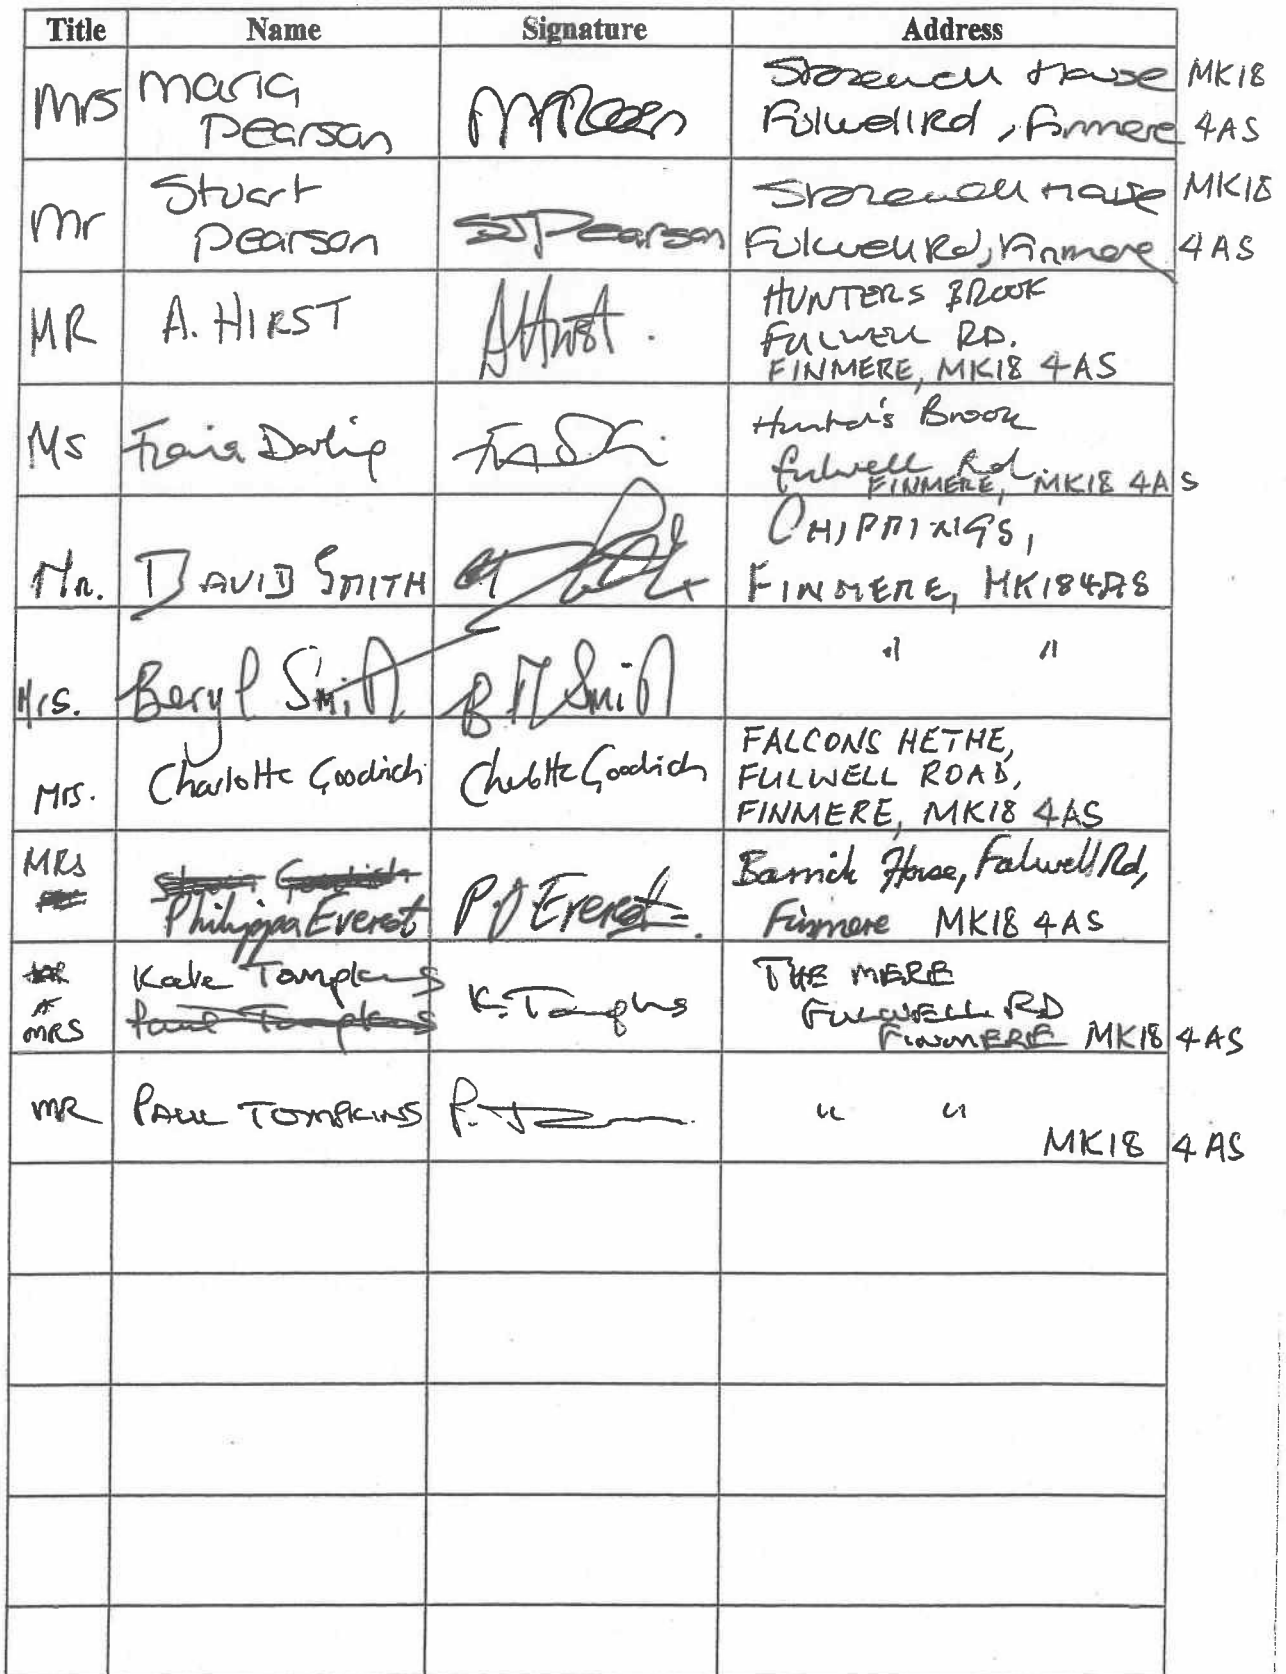 Title Name Signature Address
Mrs Maria Pearson House MK18
Fulwell Rd, Finmere 4AS
Mr Stuart Pearson SJPearson House MK18
Fulwell Rd, Finmere 4AS
MR A. HIRST AHirst. HUNTERS BROOK
FULWELL RD.
FINMERE, MK18 4AS
Ms Darling Hunter's Brook
fulwell Rd.
FINMERE, MK18 4AS
Mr. DAVID SMITH CHIPPINGS,
FINMERE, MK184AS
Mrs. Beryl Smith B M Smith " "
Mrs. Charlotte Goodrich Charlotte Goodrich FALCONS HETHE,
FULWELL ROAD,
FINMERE, MK18 4AS
MRS Goodrich
Philippa Everest P J Everest. House, Fulwell Rd,
Finmere MK18 4AS
MR
MRS
Kate Tompkins
Paul Tompkins
K. Tompkins
THE MERE
FULWELL RD
FINMERE MK18 4AS
MR PAUL TOMPKINS " "
MK18 4AS